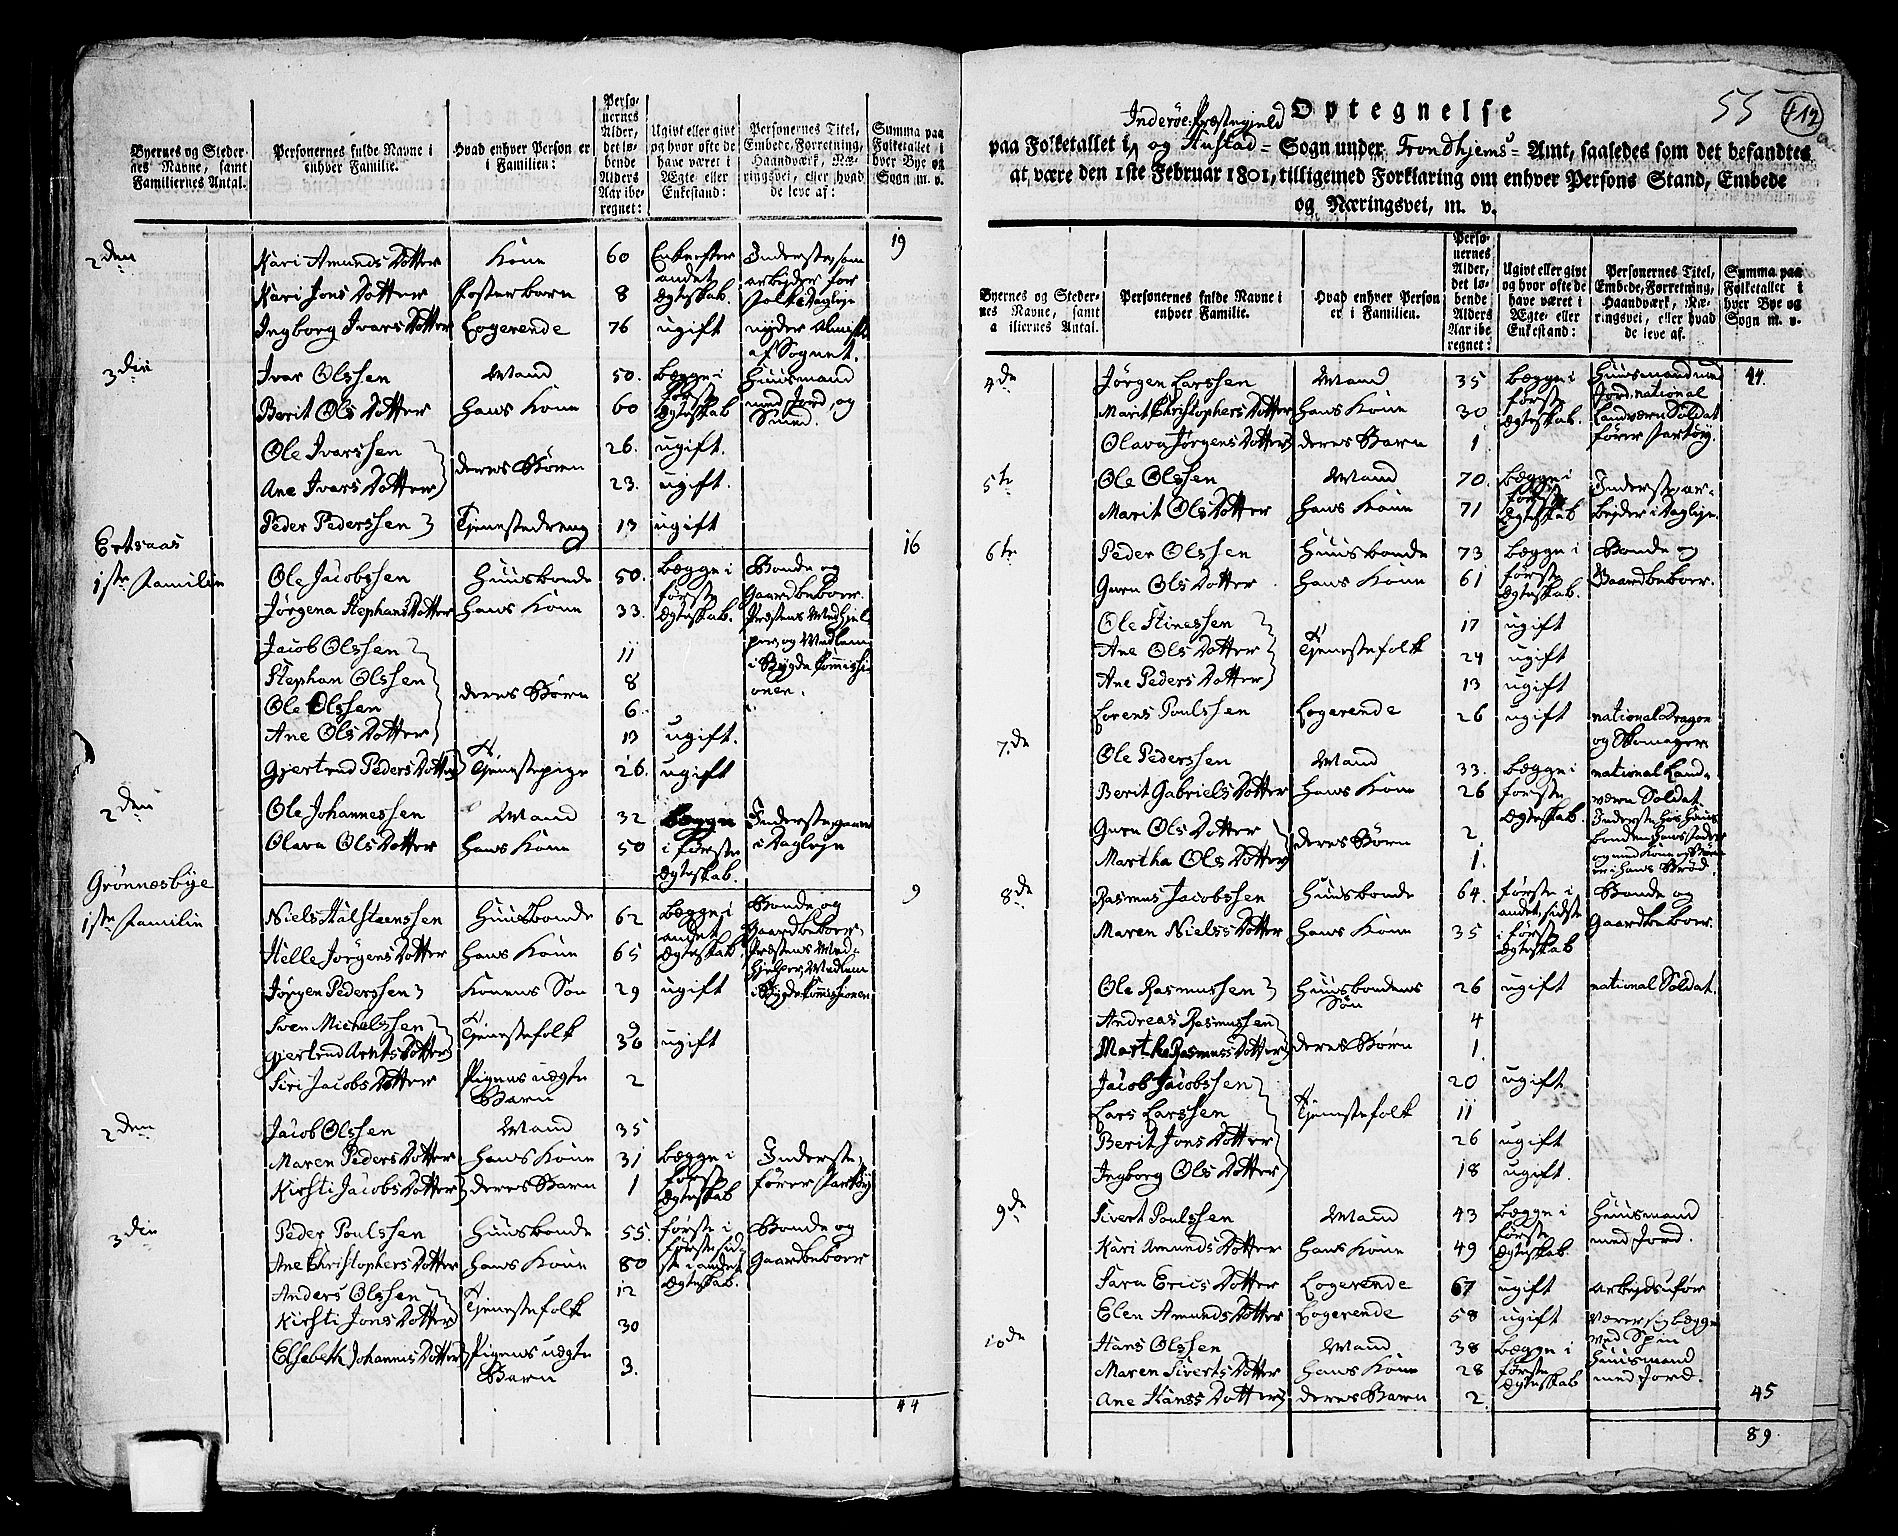 Byernes og Steder-
nes Navne, samt
Familiernes Antal.
Personernes fulde Navne i
enhver Familie.
Hvad enhver Person er
i Familien:
Perso-
nernes
Alder,
det lø-
bende
Alders
Aar ibe-
regnet:
Ugivt eller givt
og hvor ofte de
have været i
Ægte- eller
Enkestand:
Personernes Titel,
Embede, Forretning,
Haandværk, Næ-
ringsvei, eller hvad
de leve af:
Summa paa
Folketallet i
hver Bye og
Sogn m. v.
19
2den Kari Amunds Dotter Kone 60 Enke efter andet Ægteskab. Inderste, som arbejder for Folk i Dagleje
Kari Jons Dotter Fosterbarn 8
Ingborg Ivars Dotter Logerende 76 ugift nyder Almisse af Sognet.
3die Ivar Olssen Mand 50. Begge i første Ægteskab Huusmand med Jord, og Smed.
Berit Ols Dotter Hans Kone 60
Ole Ivarssen deres Børn 26. ugift.
Ane Ivars Dotter 23. ugift.
Peder Pederssen Tjenestedreng 13 ugift
Ertsaas 16
1ste Familie Ole Jacobssen Huusbonde 50. Begge i første Ægteskab. Bonde og Gaardbeboer. Præstens Medhjelper, og Medlem i Bygdekommissionen.
Jørgena Stephans Dotter Hans Kone 33.
Jacob Olssen 11
Stephan Olssen deres Børn 8
Ole Olssen 6
Ane Ols Dotter 13 ugift.
Gjertrud Peders Dotter Tjenestepige 26. ugift
2den Ole Johannessen Mand 32 Begge i første Ægteskab. Inderste, gaaer i Dagleje
Olava Ols Dotter Hans Kone 50
Grønnesbye 9
1ste Familie Niels Halsteenssen Huusbonde 62 Begge i andet Ægteskab Bonde og Gaardbeboer, Præstens Medhjelper, Medlem i Bygdekommissionen
Helle Jørgens Dotter Hans Kone 65
Jørgen Pederssen Konens Søn 29 ugift
Sven Michelssen Tjenestefolk 9
Gjertrud Arnts Dotter 36 ugift
Siri Jacobs Dotter Pigens uægte Barn 2
2den Jacob Olssen Mand 35
Maren Peders Dotter Hans Kone 31 Begge i første Ægteskab Inderste, fører Fartøj
Kirsti Jacobs Dotter deres Barn 1
3die Peder Poulssen Huusbonde 55. første i første, sidste i andet Ægteskab. Bonde og Gaardbeboer
Ane Christophers Dotter Hans Kone 80
Anders Olssen Tjenestefolk 12
Kirsti Jons Dotter 30
Elsebeth Johannis Dotter Pigens uægte Barn 3.
44
55 412
Optegnelse
Inderøe Præstegield
paa Folketallet i og Hustad = Sogn under Trondhjems = Amt, saaledes som det befandtes
at være den 1ste Februar 1801, tilligemed Forklaring om enhver Persons Stand, Embede
og Næringsvei, m. v.
Byernes og Steder-
nes Navne, samt
a iliernes Antal.
Personernes fulde Navne i
enhver Familie.
Hvad enhver Person
er i Familien.
Perso-
nernes
Alder,
det lø-
bende
Alders
Aar ibe-
regnet:
Ugivt eller givt
og hvor ofte de
have været i
Ægte- eller
Enkestand:
Personernes Titel,
Embede, Forretning,
Haandværk, Næ-
ringsvei, eller hvad
de leve af.
Summa paa
Folketallet i
hver Bye og
Sogn m. v.
44.
4de Jørgen Larssen Mand 35 Begge i første Ægteskab. Huusmand med Jord, national Landværn Soldat fører Fartøj.
Marit Christophers Dotter Hans Kone 30
Olava Jørgens Dotter deres Barn 1
5te Ole Olssen Mand 70. Begge i første Ægteskab Inderste, arbejder i Dagleje.
Marit Ols Dotter Hans Kone 71
6te Peder Olssen Huusbonde 73 Begge i første Ægteskab. Bonde og Gaardbeboer.
Guru Ols Dotter Hans Kone 61
Ole Stinessen 17 ugift
Ane Ols Dotter Tjenestefolk 24 ugift
Ane Peders Dotter 13 ugift
Lorens Poulssen Logerende 26 ugift national Dragon og Skomager
7de Ole Pederssen Mand 33. Begge i første Ægteskab. national Landværn Soldat. Inderste hos Huusbonden, hans Fader og med Kone og Børn er i hans Brød.
Berit Gabriels Dotter Hans Kone 26
Guru Ols Dotter deres Børn 2
Martha Ols Dotter 1.
8de Rasmus Jacobssen Huusbonde 64. første i andet, sidste i første Ægteskab Bonde og Gaardbeboer.
Maren Niels Dotter Hans Kone 35
Ole Rasmussen Huusbondens Søn 26 ugift national Soldat.
Andreas Rasmussen deres Børn 4
Martha Rasmus Dotter 1.
Jacob Jacobssen 20 ugift
Lars Larssen Tjenestefolk 11
Berit Jons Dotter 26 ugift
Ingborg Ols Dotter 18 ugift.
9de Sivert Poulssen Mand 43 Begge i første Ægteskab. Huusmand med Jord.
Kari Amunds Dotter Hans Kone 49
Sara Erics Dotter Logerende 67 ugift arbejdsufør
Elen Amunds Dotter Logerende 58 ugift nærer sig begge ved Spin
10de Hans Olssen Mand 38 Begge i første Ægteskab Huusmand med Jord.
Maren Siverts Dotter Hans Kone 28
Ane Hanss Dotter deres Barn 2
45
89